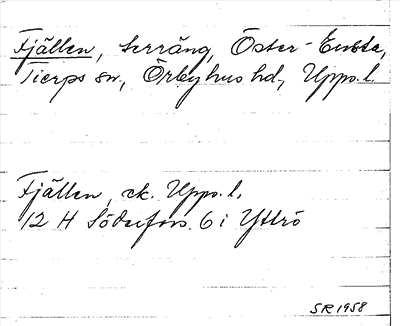 Fjällen, terräng, Öster-Ensta,
Tierps sn., Örbyhus hd, Upps. l.
Fjällen, ek. Upps. l.
12 H Söderfors 6 i Yttrö
SR 1958